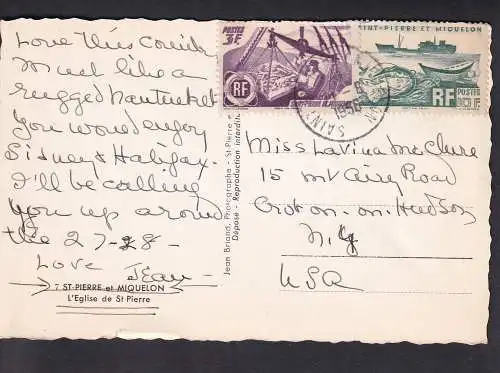 Love this
Much like a
rugged Nantucket
You would enjoy
Sidney & Halifax.
I'll be calling
you up around
the 27-28-
Love Jean
7 ST-PIERRE et MIQUELON
L'Eglise de St-Pierre
Jean Briand, Photographe - St-Pierre e
Déposé - Reproduction interdite
POSTES
3F
RF
SAINT-PIERRE ET MIQUELON
POSTES
RF
10F
SAINT
1950
Miss Lavina McClure
15 Mt Airy Road
Croton-on-Hudson
N.Y
USA